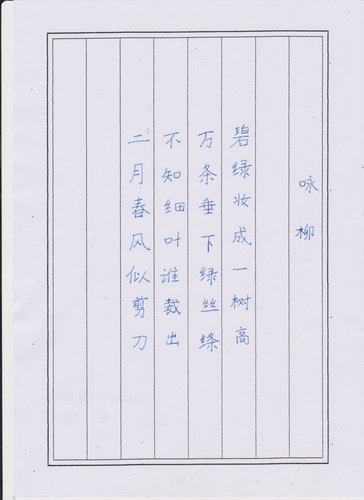 咏柳
碧绿妆成一树高
万条垂下绿丝绦
不知细叶谁裁出
二月春风似剪刀